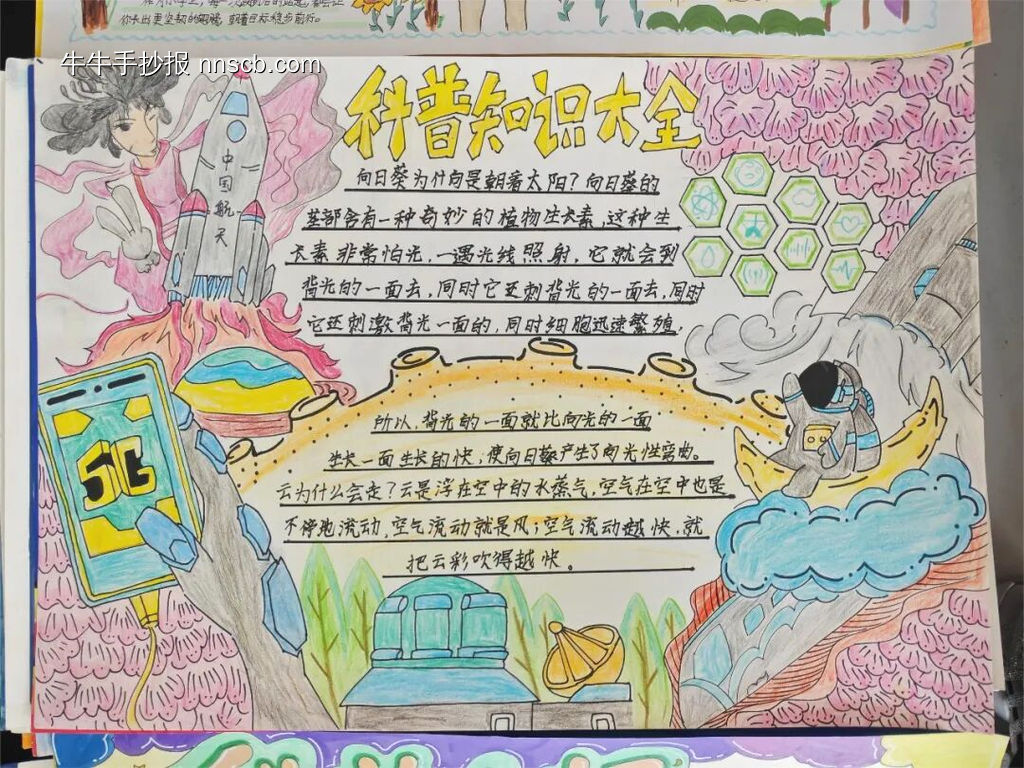 你卡出更坚韧的翅膀，朝着目标稳步前行。
牛牛手抄报 nnscb.com
科普知识大全
中国航天
向日葵为什向是朝着太阳？向日葵的
茎部含有一种奇妙的植物生长素，这种生
长素非常怕光，一遇光线照射，它就会到
背光的一面去，同时它还刺背光的一面去，同时
它还刺激背光一面的，同时细胞迅速繁殖，
所以，背光的一面就比向光的一面
生长一面生长的快，使向日葵产生了向光性弯曲。
云为什么会走？云是浮在空中的水蒸气，空气在空中也是
不停地流动，空气流动就是风；空气流动越快，就
把云彩吹得越快。
5G